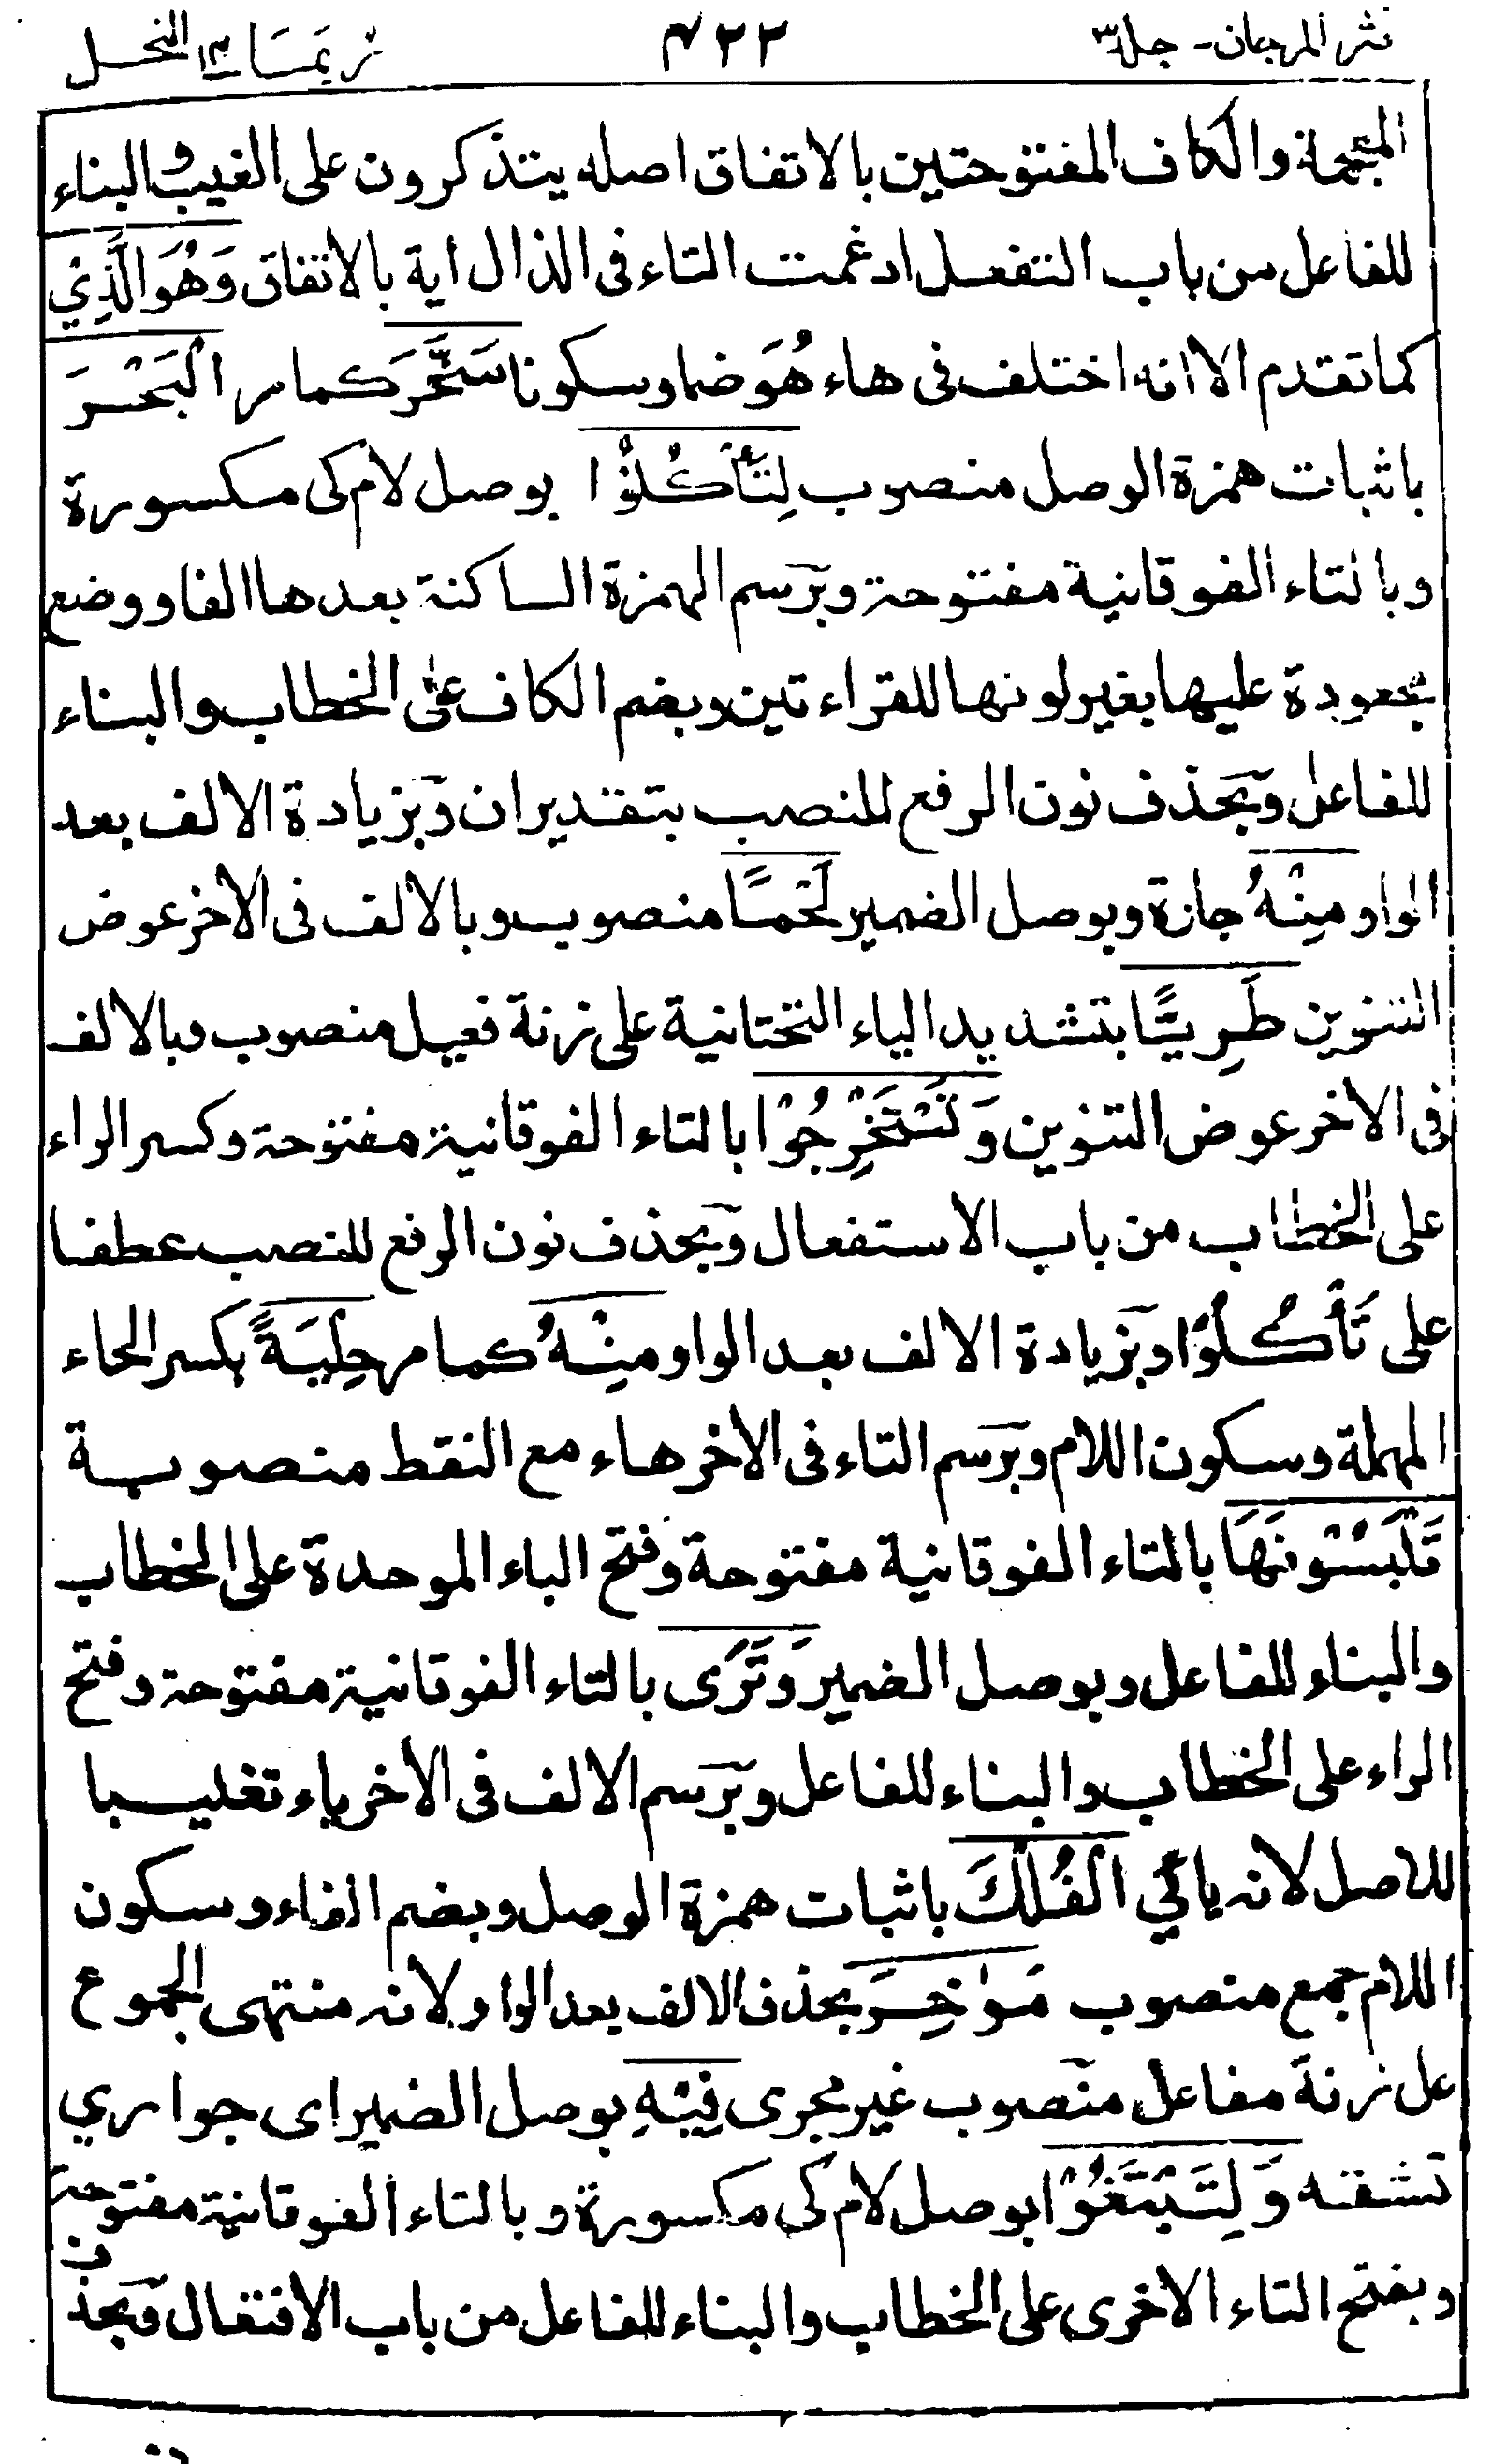 نثر المرجان - جلد ٣ ٤٢٢ ربما ١٤ النحل
المعجمة والكاف المفتوحتين بالاتفاق اصله يتذكرون على الغيب والبناء
للفاعل من باب التفعل ادغمت التاء فى الذال اية بالاتفاق وَهُوَ الَّذِيْ
كما تقدم الا انه اختلف فى هاء هُوَ ضما وسكونا سَخَّرَ كما مر الْبَحْرَ
باثبات همزة الوصل منصوب لِتَأْكُلُوْا بوصل لام كى مكسورة
وبالتاء الفوقانية مفتوحة وبرسم الهمزة الساكنة بعدها الفا ووضع
مجعودة عليها بغير لونها للقراءتين وبضم الكاف على الخطاب والبناء
للفاعل وبحذف نون الرفع للنصب بتقدير ان وبزيادة الالف بعد
الواو مِنْهُ جارة وبوصل الضمير لَحْمًا منصوب وبالالف فى الاخر عوض
التنوين طَرِيًّا بتشديد الياء التحتانية على زنة فعيل منصوب وبالالف
فى الاخر عوض التنوين وَتَسْتَخْرِجُوْا بالتاء الفوقانية مفتوحة وكسر الراء
على الخطاب من باب الاستفعال وبحذف نون الرفع للنصب عطفا
على تَأْكُلُوْا وبزيادة الالف بعد الواو مِنْهُ كما مر حِلْيَةً بكسر الحاء
المهملة وسكون اللام وبرسم التاء فى الاخر هاء مع النقط منصوبة
تَلْبَسُوْنَهَا بالتاء الفوقانية مفتوحة وفتح الباء الموحدة على الخطاب
والبناء للفاعل وبوصل الضمير وَتَرَى بالتاء الفوقانية مفتوحة وفتح
الراء على الخطاب والبناء للفاعل وبرسم الالف فى الاخر ياء تغليبا
للاصل لانه يائي الْفُلْكَ باثبات همزة الوصل وبضم الفاء وسكون
اللام جمع منصوب مَوٰخِرَ بحذف الالف بعد الواو لانه منتهى الجموع
على زنة مفاعل منصوب غير مجرى فِيْهِ بوصل الضمير اى جوارى
تشقه وَلِتَبْتَغُوْا بوصل لام كى مكسورة وبالتاء الفوقانية مفتوحة
وبفتح التاء الاخرى على الخطاب والبناء للفاعل من باب الافتعال وبحذف